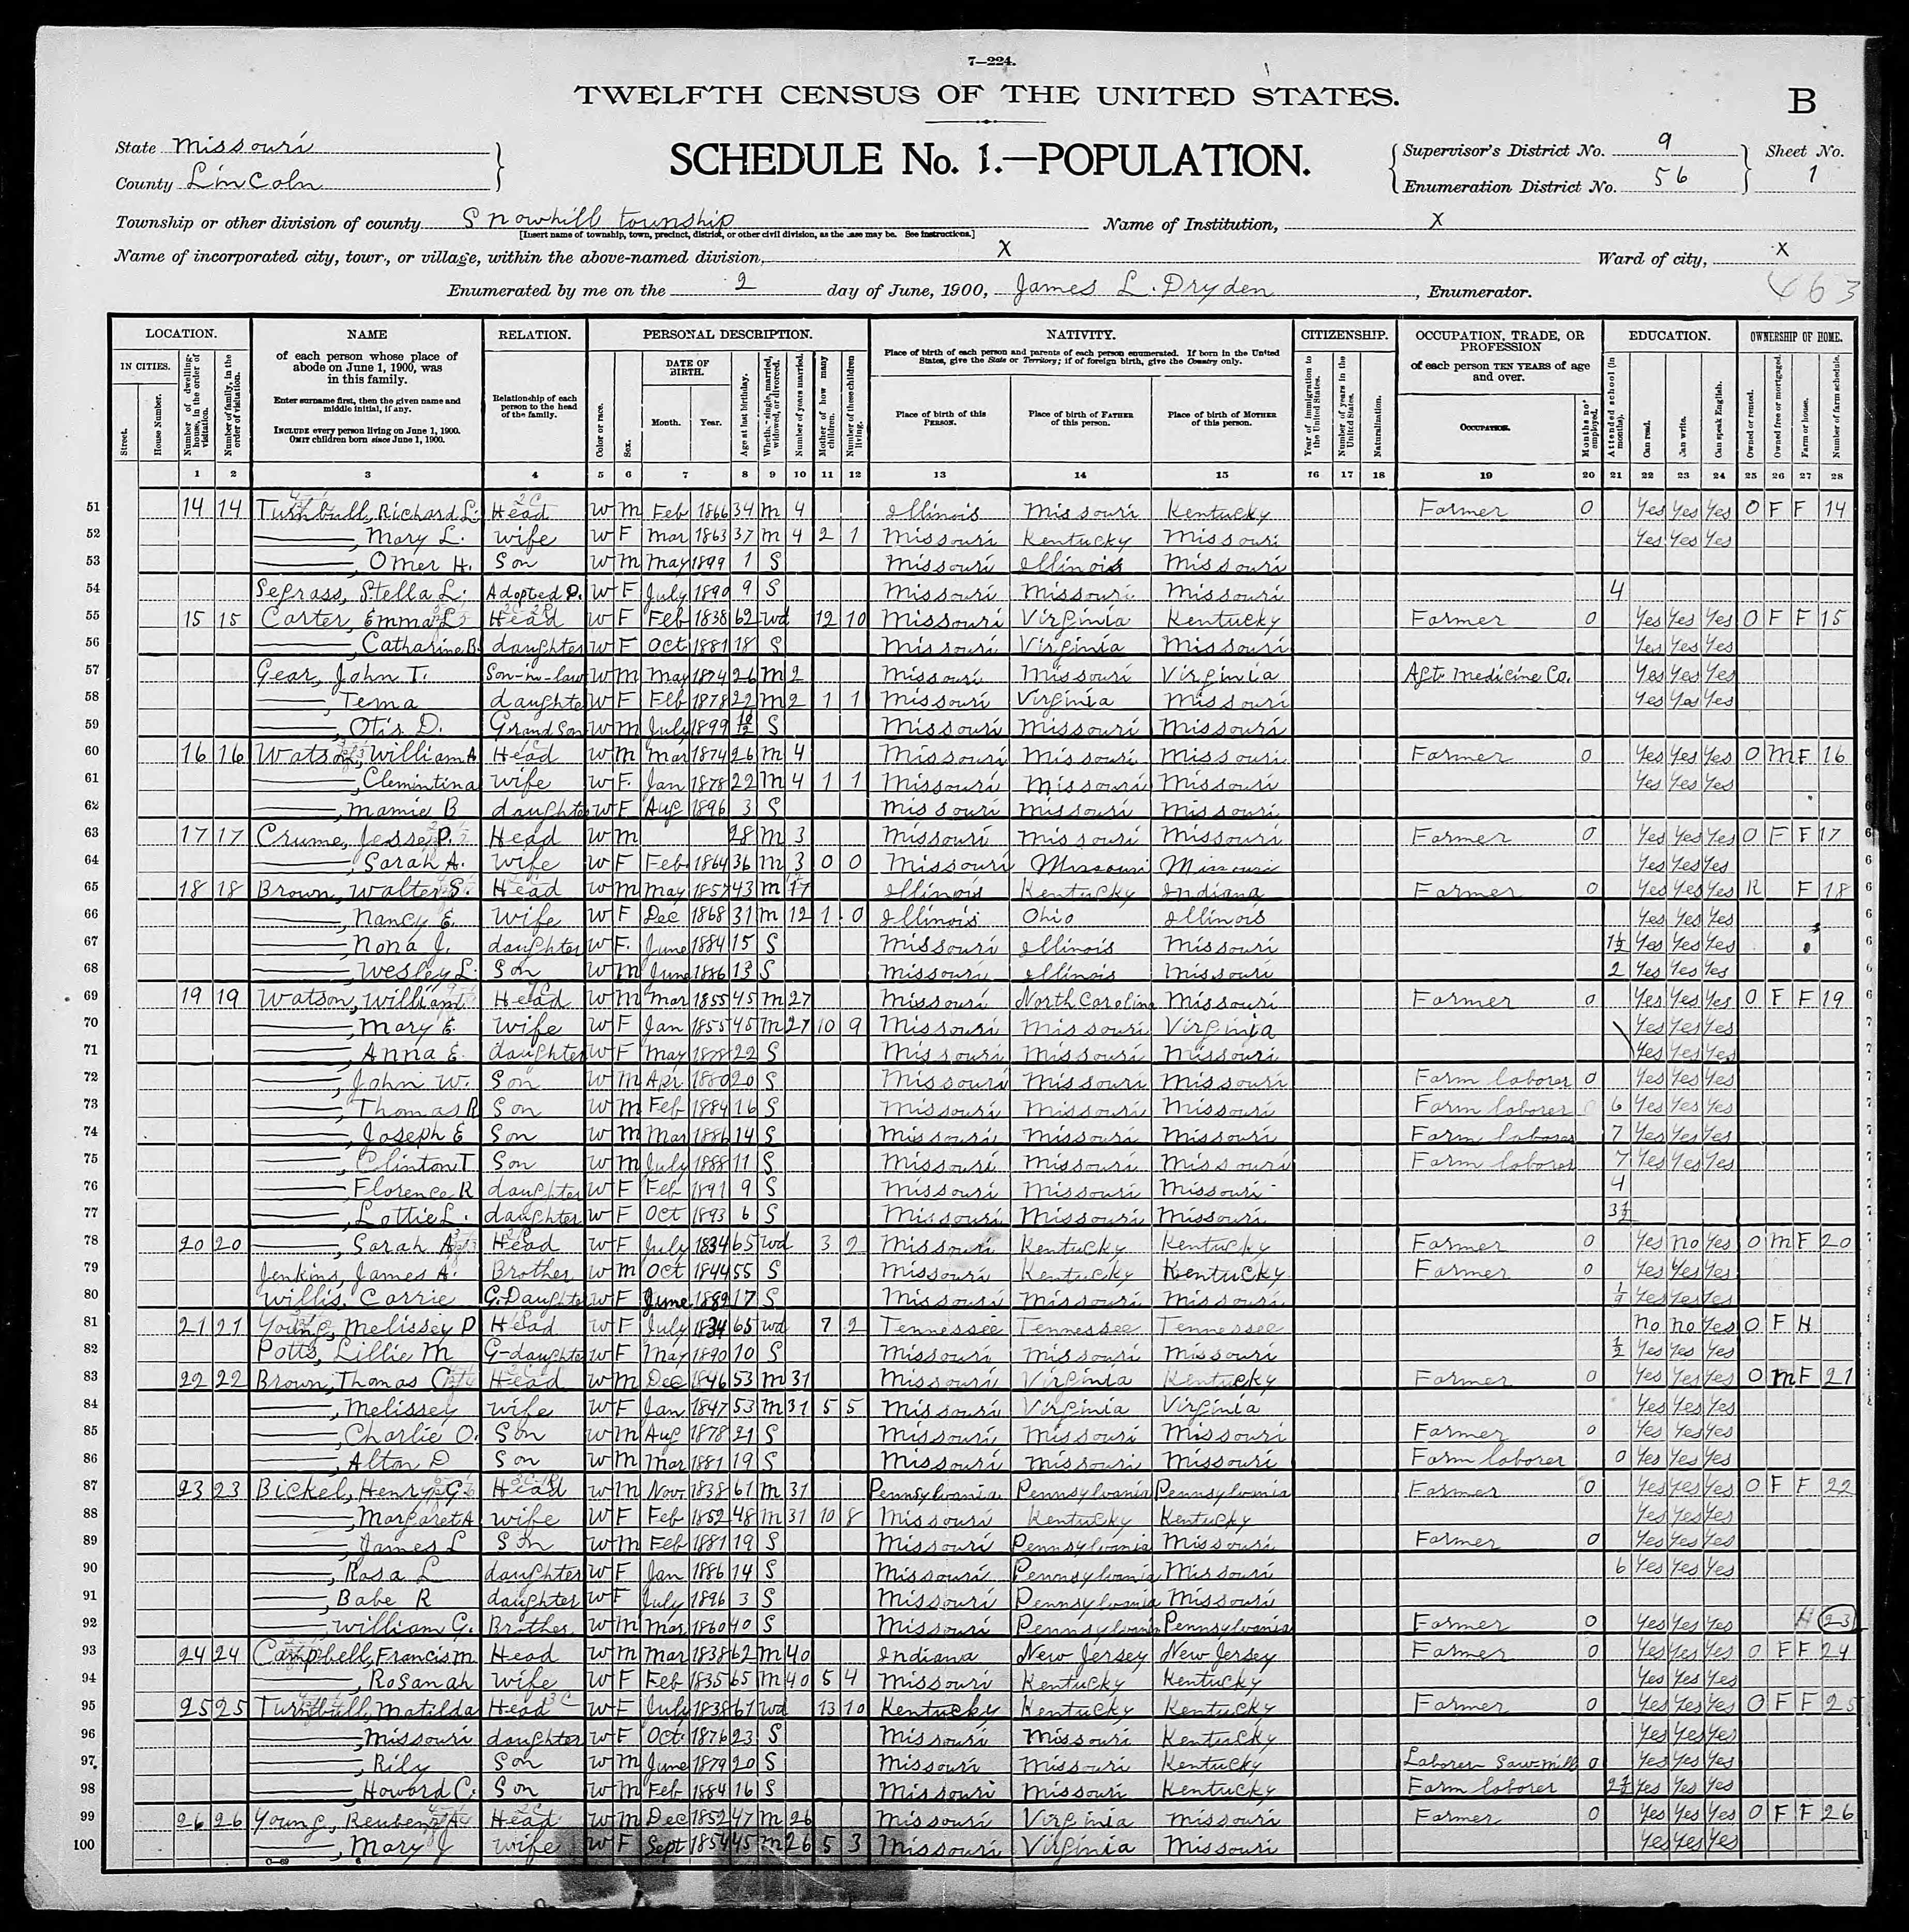 7—224.
TWELFTH CENSUS OF THE UNITED STATES.
B
State Missouri
County Lincoln
SCHEDULE No. 1.—POPULATION.
Supervisor's District No. 9
Enumeration District No. 56
Sheet No. 1
Township or other division of county Snowhill township
[Insert name of township, town, precinct, district, or other civil division, as the case may be. See instructions.]
Name of Institution, X
Name of incorporated city, town, or village, within the above-named division, X
Ward of city, X
Enumerated by me on the 2 day of June, 1900, James L. Dryden, Enumerator.
463
LOCATION.
IN CITIES.
Street.
House Number.
Number of dwelling-house, in the order of visitation.
Number of family, in the order of visitation.
NAME
of each person whose place of abode on June 1, 1900, was in this family.
Enter surname first, then the given name and middle initial, if any.
INCLUDE every person living on June 1, 1900.
OMIT children born since June 1, 1900.
RELATION.
Relationship of each person to the head of the family.
PERSONAL DESCRIPTION.
Color or race.
Sex.
DATE OF BIRTH.
Month.
Year.
Age at last birthday.
Whether single, married, widowed, or divorced.
Number of years married.
Mother of how many children.
Number of these children living.
NATIVITY.
Place of birth of each person and parents of each person enumerated. If born in the United States, give the State or Territory; if of foreign birth, give the Country only.
Place of birth of this PERSON.
Place of birth of FATHER of this person.
Place of birth of MOTHER of this person.
CITIZENSHIP.
Year of immigration to the United States.
Number of years in the United States.
Naturalization.
OCCUPATION, TRADE, OR PROFESSION
of each person TEN YEARS of age and over.
OCCUPATION.
Months not employed.
EDUCATION.
Attended school (in months).
Can read.
Can write.
Can speak English.
OWNERSHIP OF HOME.
Owned or rented.
Owned free or mortgaged.
Farm or house.
Number of farm schedule.
1 2 3 4 5 6 7 8 9 10 11 12 13 14 15 16 17 18 19 20 21 22 23 24 25 26 27 28
51 14 14 Turnbull, Richard L. Head W M Feb 1866 34 M 4 Illinois Missouri Kentucky Farmer 0 Yes Yes Yes O F F 14
52 ———, Mary L. Wife W F Mar 1863 37 M 4 2 1 Missouri Kentucky Missouri Yes Yes Yes
53 ———, Omer H. Son W M May 1899 1 S Missouri Illinois Missouri
54 Segrass, Stella L. Adopted D. W F July 1890 9 S Missouri Missouri Missouri 4
55 15 15 Carter, Emma L Head W F Feb 1838 62 Wd 12 10 Missouri Virginia Kentucky Farmer 0 Yes Yes Yes O F F 15
56 ———, Catharine B. daughter W F Oct 1881 18 S Missouri Virginia Missouri Yes Yes Yes
57 Gear, John T. Son-in-law W M May 1874 26 M 2 Missouri Missouri Virginia Agt. Medicine Co. Yes Yes Yes
58 ———, Tema daughter W F Feb 1878 22 M 2 1 1 Missouri Virginia Missouri Yes Yes Yes
59 ———, Otis D. Grand Son W M July 1899 10/12 S Missouri Missouri Missouri
60 16 16 Watson, William A Head W M Mar 1874 26 M 4 Missouri Missouri Missouri Farmer 0 Yes Yes Yes O M F 16
61 ———, Clemintina Wife W F. Jan 1878 22 M 4 1 1 Missouri Missouri Missouri Yes Yes Yes
62 ———, Mamie B daughter W F Aug 1896 3 S Missouri Missouri Missouri
63 17 17 Crume, Jesse P. Head W M 28 M 3 Missouri Missouri Missouri Farmer 0 Yes Yes Yes O F F 17
64 ———, Sarah A. Wife W F Feb 1864 36 M 3 0 0 Missouri Missouri Missouri Yes Yes Yes
65 18 18 Brown, Walter S. Head W M May 1857 43 M Illinois Kentucky Indiana Farmer 0 Yes Yes Yes R F 18
66 ———, Nancy E. Wife W F Dec 1868 31 M 12 1 0 Illinois Ohio Illinois Yes Yes Yes
67 ———, Nona J. daughter W F. June 1884 15 S Missouri Illinois Missouri 1½ Yes Yes Yes
68 ———, Wesley L. Son W M June 1886 13 S Missouri Illinois Missouri 2 Yes Yes Yes
69 19 19 Watson, William Head W M Mar 1855 45 M 27 Missouri North Carolina Missouri Farmer 0 Yes Yes Yes O F F 19
70 ———, Mary E. Wife W F Jan 1855 45 M 27 10 9 Missouri Missouri Virginia Yes Yes Yes
71 ———, Anna E. daughter W F May 1878 22 S Missouri Missouri Missouri Yes Yes Yes
72 ———, John W. Son W M Apr. 1880 20 S Missouri Missouri Missouri Farm laborer 0 Yes Yes Yes
73 ———, Thomas R Son W M Feb 1884 16 S Missouri Missouri Missouri Farm laborer 6 Yes Yes Yes
74 ———, Joseph E Son W M Mar 1886 14 S Missouri Missouri Missouri Farm laborer 7 Yes Yes Yes
75 ———, Clinton T Son W M July 1888 11 S Missouri Missouri Missouri Farm laborer 7 Yes Yes Yes
76 ———, Florence R daughter W F Feb 1891 9 S Missouri Missouri Missouri 4
77 ———, Lottie L. daughter W F Oct 1893 6 S Missouri Missouri Missouri 3½
78 20 20 ———, Sarah A Head W F July 1834 65 Wd 3 2 Missouri Kentucky Kentucky Farmer 0 Yes No Yes O M F 20
79 Jenkins, James A. Brother W M Oct 1844 55 S Missouri Kentucky Kentucky Farmer 0 Yes Yes Yes
80 Willis, Carrie G. Daughter W F June 1882 17 S Missouri Missouri Missouri Yes Yes Yes
81 21 21 Young, Melissey P Head W F July 1834 65 Wd 7 2 Tennessee Tennessee Tennessee No No Yes O F H
82 Potts, Lillie M G-daughter W F May 1890 10 S Missouri Missouri Missouri ½ Yes Yes Yes
83 22 22 Brown, Thomas C Head W M Dec 1846 53 M 31 Missouri Virginia Kentucky Farmer 0 Yes Yes Yes O M F 21
84 ———, Melissey Wife W F Jan 1847 53 M 31 5 5 Missouri Virginia Virginia Yes Yes Yes
85 ———, Charlie O. Son W M Aug 1878 21 S Missouri Missouri Missouri Farmer 0 Yes Yes Yes
86 ———, Alton D Son W M Mar 1881 19 S Missouri Missouri Missouri Farm laborer 0 Yes Yes Yes
87 23 23 Bickel, Henry G. Head W M Nov. 1838 61 M 31 Pennsylvania Pennsylvania Pennsylvania Farmer 0 Yes Yes Yes O F F 22
88 ———, Margaret A Wife W F Feb 1852 48 M 31 10 8 Missouri Kentucky Kentucky Yes Yes Yes
89 ———, James L Son W M Feb 1881 19 S Missouri Pennsylvania Missouri Farmer 0 Yes Yes Yes
90 ———, Rosa L daughter W F Jan 1886 14 S Missouri Pennsylvania Missouri 6 Yes Yes Yes
91 ———, Babe R daughter W F July 1896 3 S Missouri Pennsylvania Missouri
92 ———, William G. Brother W M Mar 1860 40 S Missouri Pennsylvania Pennsylvania Farmer 0 Yes Yes Yes H 23
93 24 24 Campbell, Francis M Head W M Mar 1838 62 M 40 Indiana New Jersey New Jersey Farmer 0 Yes Yes Yes O F F 24
94 ———, Rosanah Wife W F Feb 1835 65 M 40 5 4 Missouri Kentucky Kentucky Yes Yes Yes
95 25 25 Turnbull, Matilda Head W F July 1838 61 Wd 13 10 Kentucky Kentucky Kentucky Farmer 0 Yes Yes Yes O F F 25
96 ———, Missouri daughter W F Oct. 1876 23 S Missouri Missouri Kentucky Yes Yes Yes
97 ———, Rily Son W M June 1879 20 S Missouri Missouri Kentucky Laborer Saw-Mill 0 Yes Yes Yes
98 ———, Howard C. Son W M Feb 1884 16 S Missouri Missouri Kentucky Farm laborer 2½ Yes Yes Yes
99 26 26 Young, Reubena A Head W M Dec 1852 47 M 26 Missouri Virginia Missouri Farmer 0 Yes Yes Yes O F F 26
100 ———, Mary J Wife W F Sept 1854 45 M 26 5 3 Missouri Virginia Missouri Yes Yes Yes